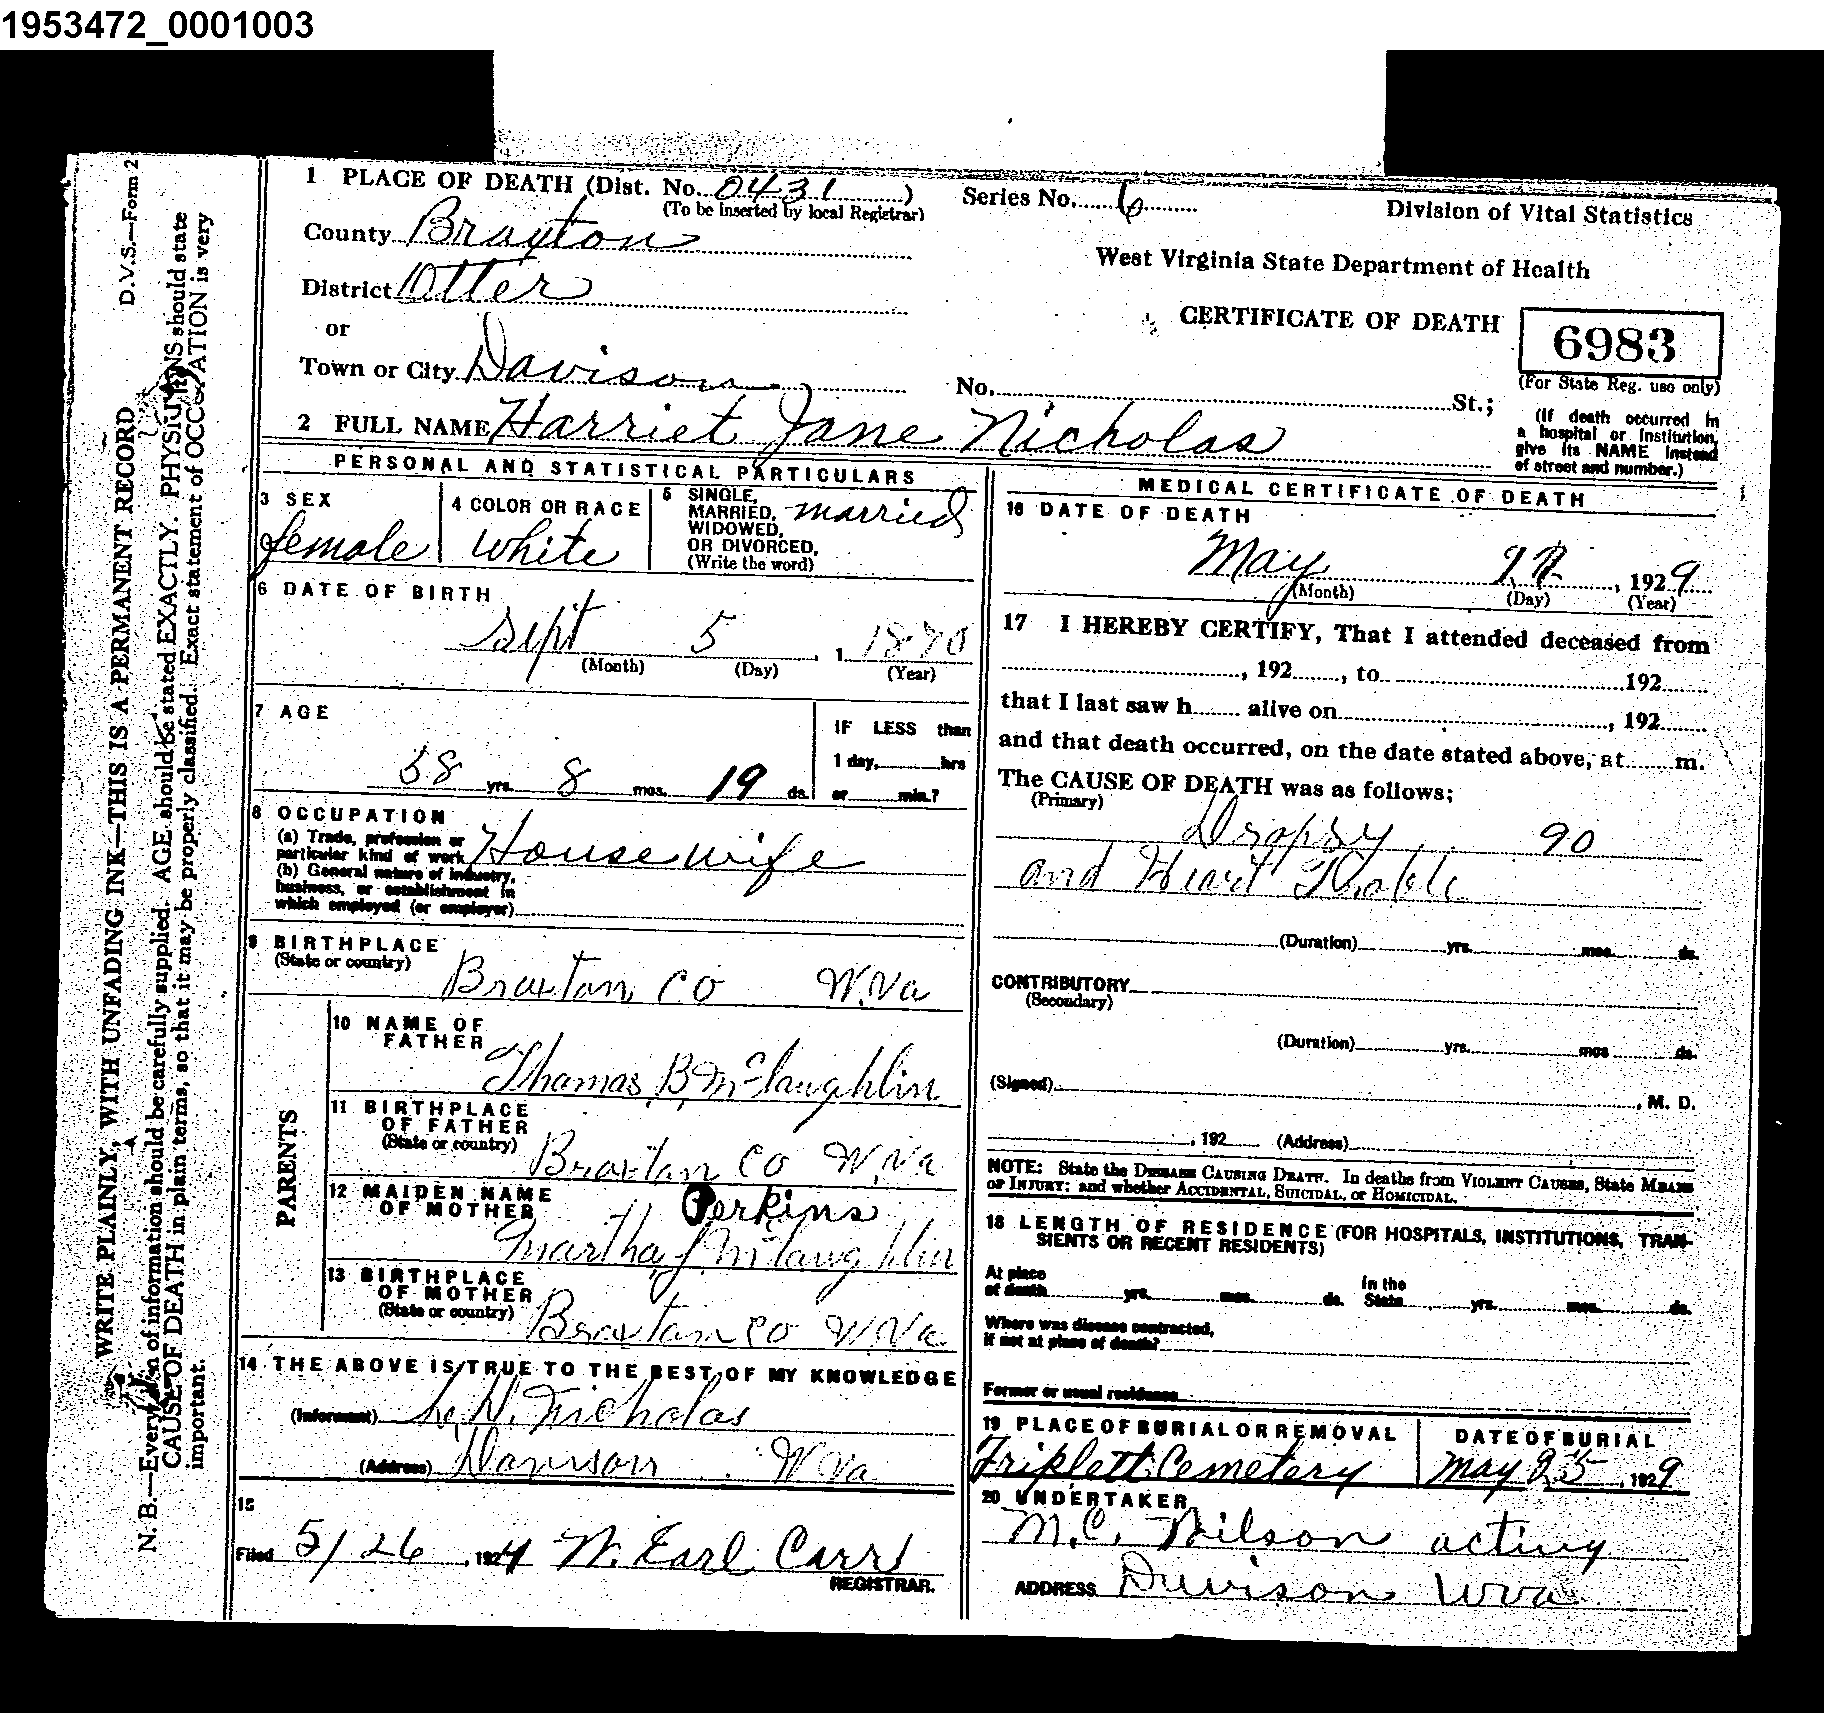 1953472_0001003
1 PLACE OF DEATH (Dist. No. 0431 )
(To be inserted by local Registrar)
Series No. 6
Division of Vital Statistics
County Braxton
West Virginia State Department of Health
District Otter
or
CERTIFICATE OF DEATH
6983
(For State Reg. use only)
Town or City Davison
No. St.;
(If death occurred in
a hospital or Institution,
give its NAME instead
of street and number.)
2 FULL NAME Harriet Jane Nicholas
PERSONAL AND STATISTICAL PARTICULARS
3 SEX
female
4 COLOR OR RACE
white
5 SINGLE,
MARRIED,
WIDOWED,
OR DIVORCED,
(Write the word)
married
6 DATE OF BIRTH
Sept 5 , 1 1870
(Month) (Day) (Year)
7 AGE
58 yrs. 8 mos. 19 ds.
IF LESS than
1 day, hrs
or min.?
8 OCCUPATION
(a) Trade, profession or
particular kind of work House wife
(b) General nature of industry,
business, or establishment in
which employed (or employer)
9 BIRTHPLACE
(State or country)
Braxton Co W.Va
PARENTS
10 NAME OF
FATHER
Thomas B. McLaughlin
11 BIRTHPLACE
OF FATHER
(State or country)
Braxton Co W.Va
12 MAIDEN NAME
OF MOTHER
Perkins
Martha J McLaughlin
13 BIRTHPLACE
OF MOTHER
(State or country)
Braxton Co W.Va
14 THE ABOVE IS TRUE TO THE BEST OF MY KNOWLEDGE
(Informant) Nicholas
(Address) Davison W Va
15
Filed 5/26 , 192 W. Earl Carr
REGISTRAR.
MEDICAL CERTIFICATE OF DEATH
16 DATE OF DEATH
May , 1929
(Month) (Day) (Year)
17 I HEREBY CERTIFY, That I attended deceased from
, 192 , to 192
that I last saw h alive on , 192
and that death occurred, on the date stated above, at m.
The CAUSE OF DEATH was as follows;
(Primary)
Dropsy 90
and Heart
(Duration) yrs. mos. ds.
CONTRIBUTORY
(Secondary)
(Duration) yrs. mos ds.
(Signed)
, M. D.
, 192 (Address)
NOTE: State the DISEASE CAUSING DEATH. In deaths from VIOLENT CAUSES, State MEANS
OF INJURY; and whether ACCIDENTAL, SUICIDAL, or HOMICIDAL.
18 LENGTH OF RESIDENCE (FOR HOSPITALS, INSTITUTIONS, TRAN-
SIENTS OR RECENT RESIDENTS)
At place
of death yrs. mos. ds.
In the
State yrs. mos. ds.
Where was disease contracted,
if not at place of death?
Former or usual residence
19 PLACE OF BURIAL OR REMOVAL
Triplett Cemetery
DATE OF BURIAL
May 25 , 1929
20 UNDERTAKER
M.C. Wilson acting
ADDRESS Davison W va
D.V.S.—Form 2
WRITE PLAINLY, WITH UNFADING INK—THIS IS A PERMANENT RECORD
N. B.—Every item of information should be carefully supplied. AGE should be stated EXACTLY. PHYSICIANS should state
CAUSE OF DEATH in plain terms, so that it may be properly classified. Exact statement of OCCUPATION is very
important.